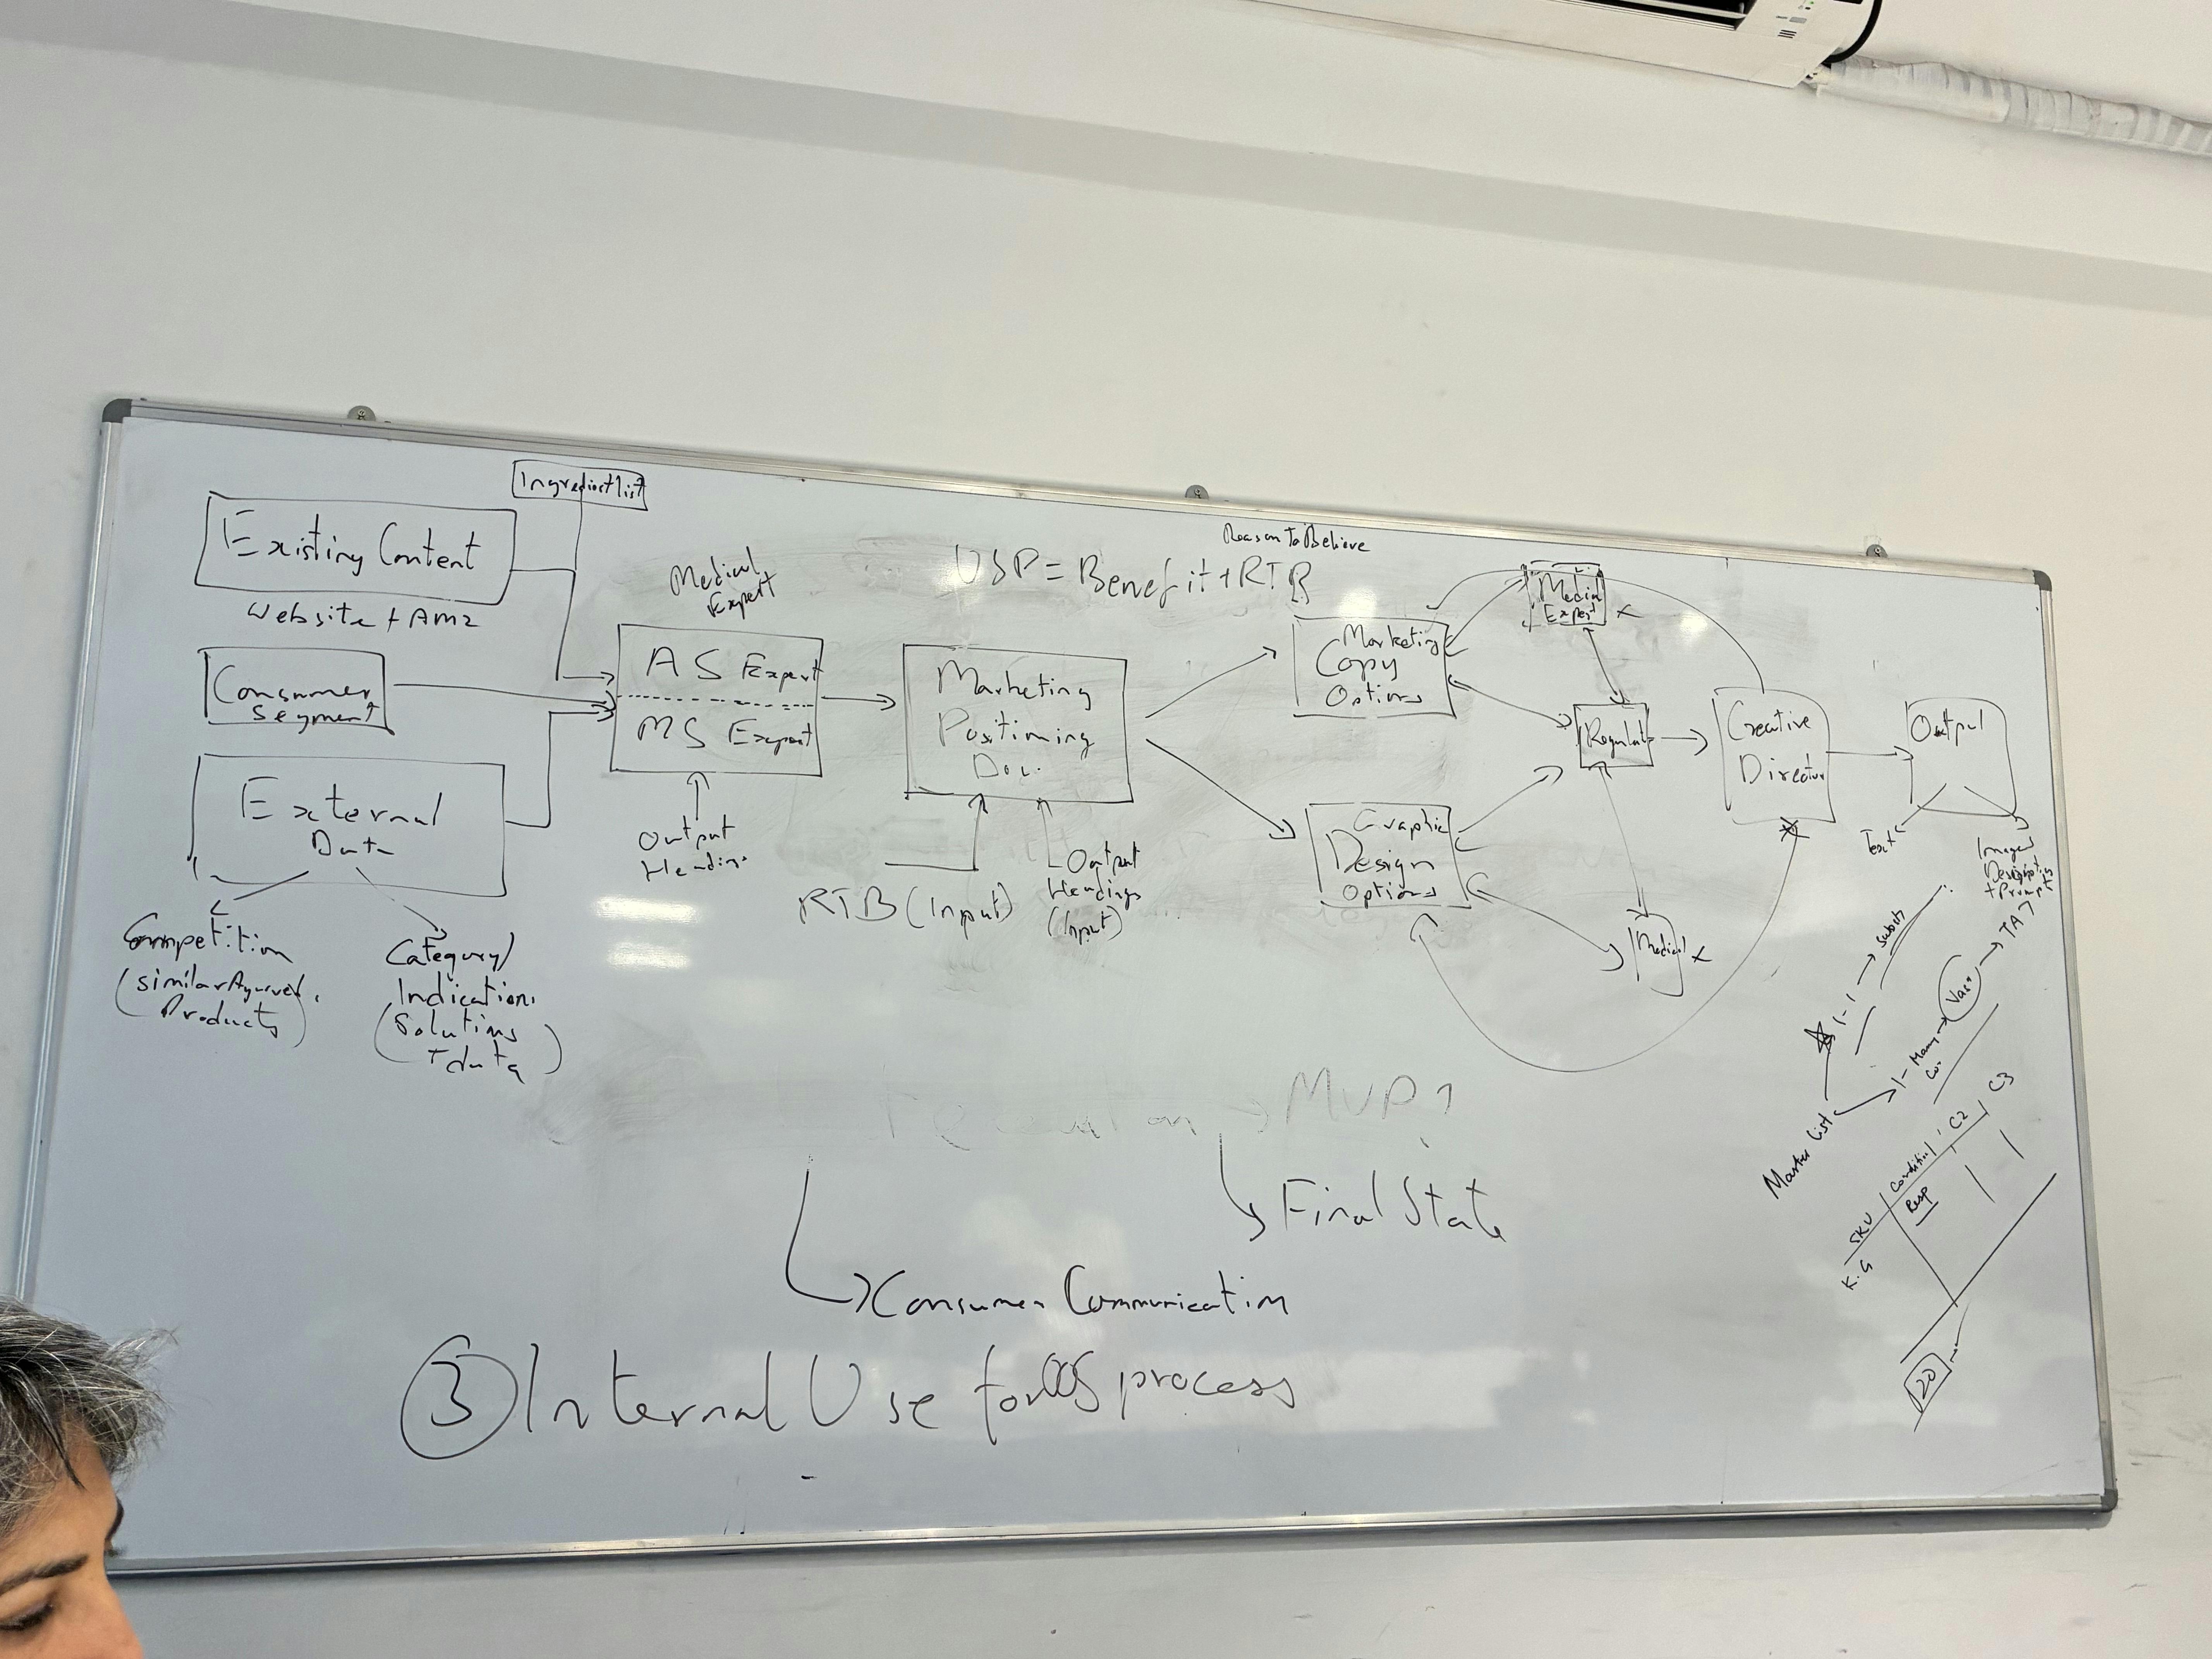 Ingredient list
Existing Content
Website + AMZ
Consumer
Segment
External
Data
Competition
(similar Ayurved.
Products)
Category/
Indication
(Solutions
+ data)
Medical
Expert
AS Expert
MS Expert
Output
Heading
USP = Benefit + RTB
Reason to Believe
Marketing
Positioning
Doc.
RTB (Input)
Output
Headings
(Input)
Marketing
Copy
Options
Graphic
Design
Options
Expert
Medical
Creative
Director
Output
Text
Image
+ Prompts
→ MVP
Final State
Consumer Communication
3 Internal Use for process
Master List
1-1 →
1-Many
SKU
Condition 1
C2
C3
Resp
K.G
20